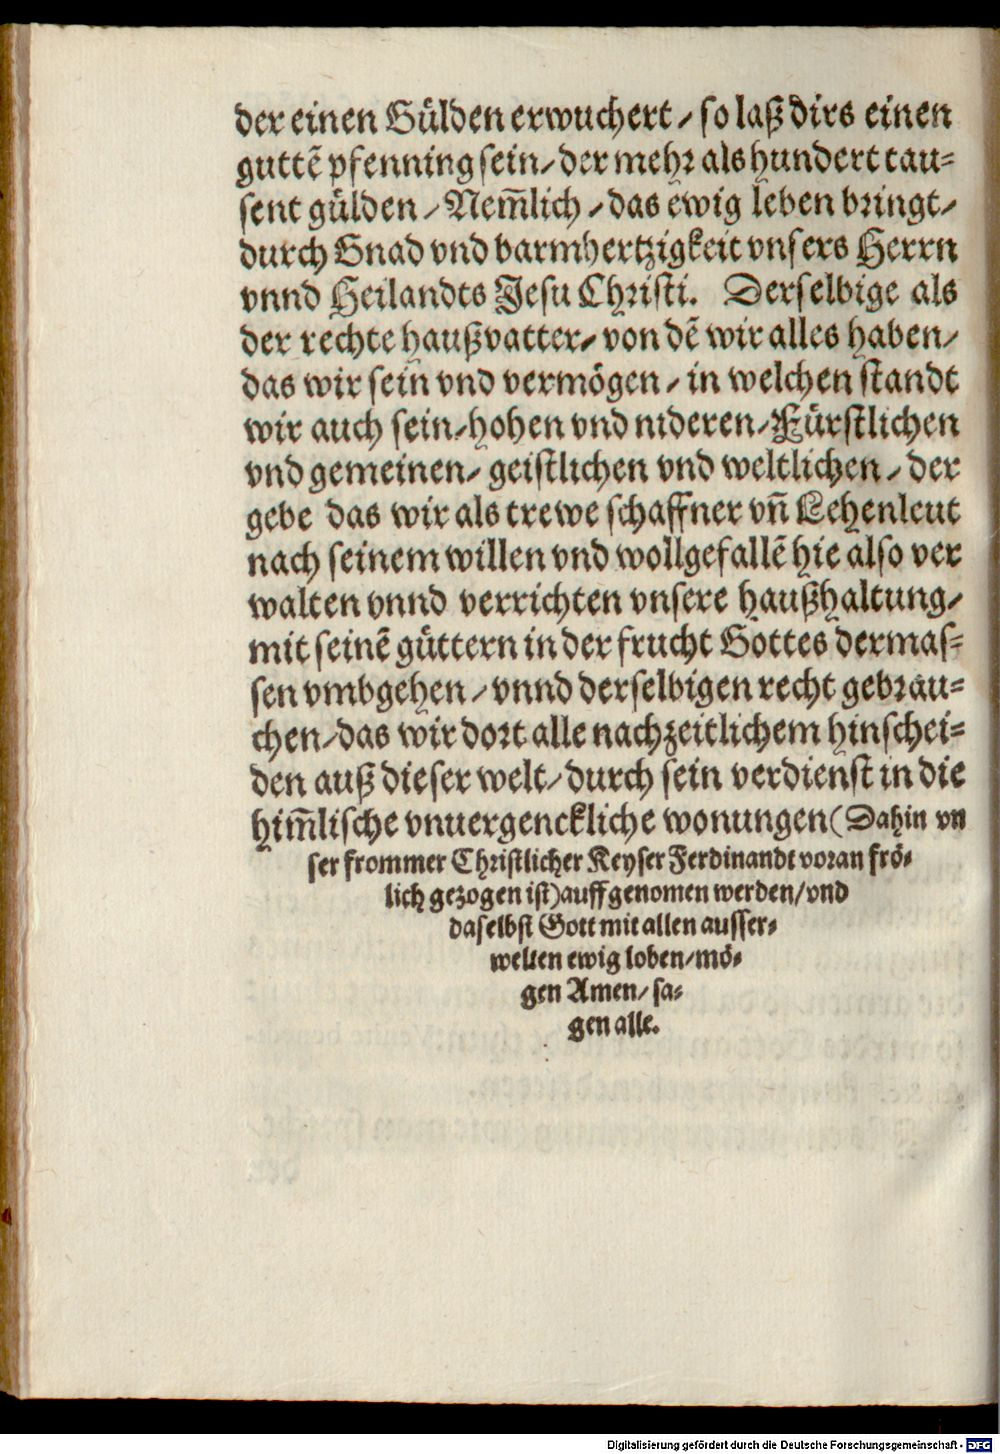 der einen Gülden erwuchert / so laß dirs einen
guttẽ pfenning sein / der mehr als hundert tau-
sent gülden / Nem̃lich / das ewig leben bringt /
durch Gnad vnd barmhertzigkeit vnsers Herrn
vnnd Heilandts Jesu Christi. Derselbige als
der rechte haußvatter / von dẽ wir alles haben /
das wir sein vnd vermögen / in welchen standt
wir auch sein / hohen vnd nideren / Fürstlichen
vnd gemeinen / geistlichen vnd weltlichen / der
gebe das wir als trewe schaffner vñ Lehenleut
nach seinem willen vnd wollgefallẽ hie also ver
walten vnnd verrichten vnsere haußhaltung /
mit seinẽ güttern in der frucht Gottes dermas-
sen vmbgehen / vnnd derselbigen recht gebrau-
chen / das wir dort alle nach zeitlichem hinschei-
den auß dieser welt / durch sein verdienst in die
him̃lische vnuergenckliche wonungen (Dahin vn
ser frommer Christlicher Keyser Ferdinandt voran frö-
lich gezogen ist) auffgenomen werden / vnd
daselbst Gott mit allen ausser-
welten ewig loben / mö-
gen Amen / sa-
gen alle.
Digitalisierung gefördert durch die Deutsche Forschungsgemeinschaft - DFG